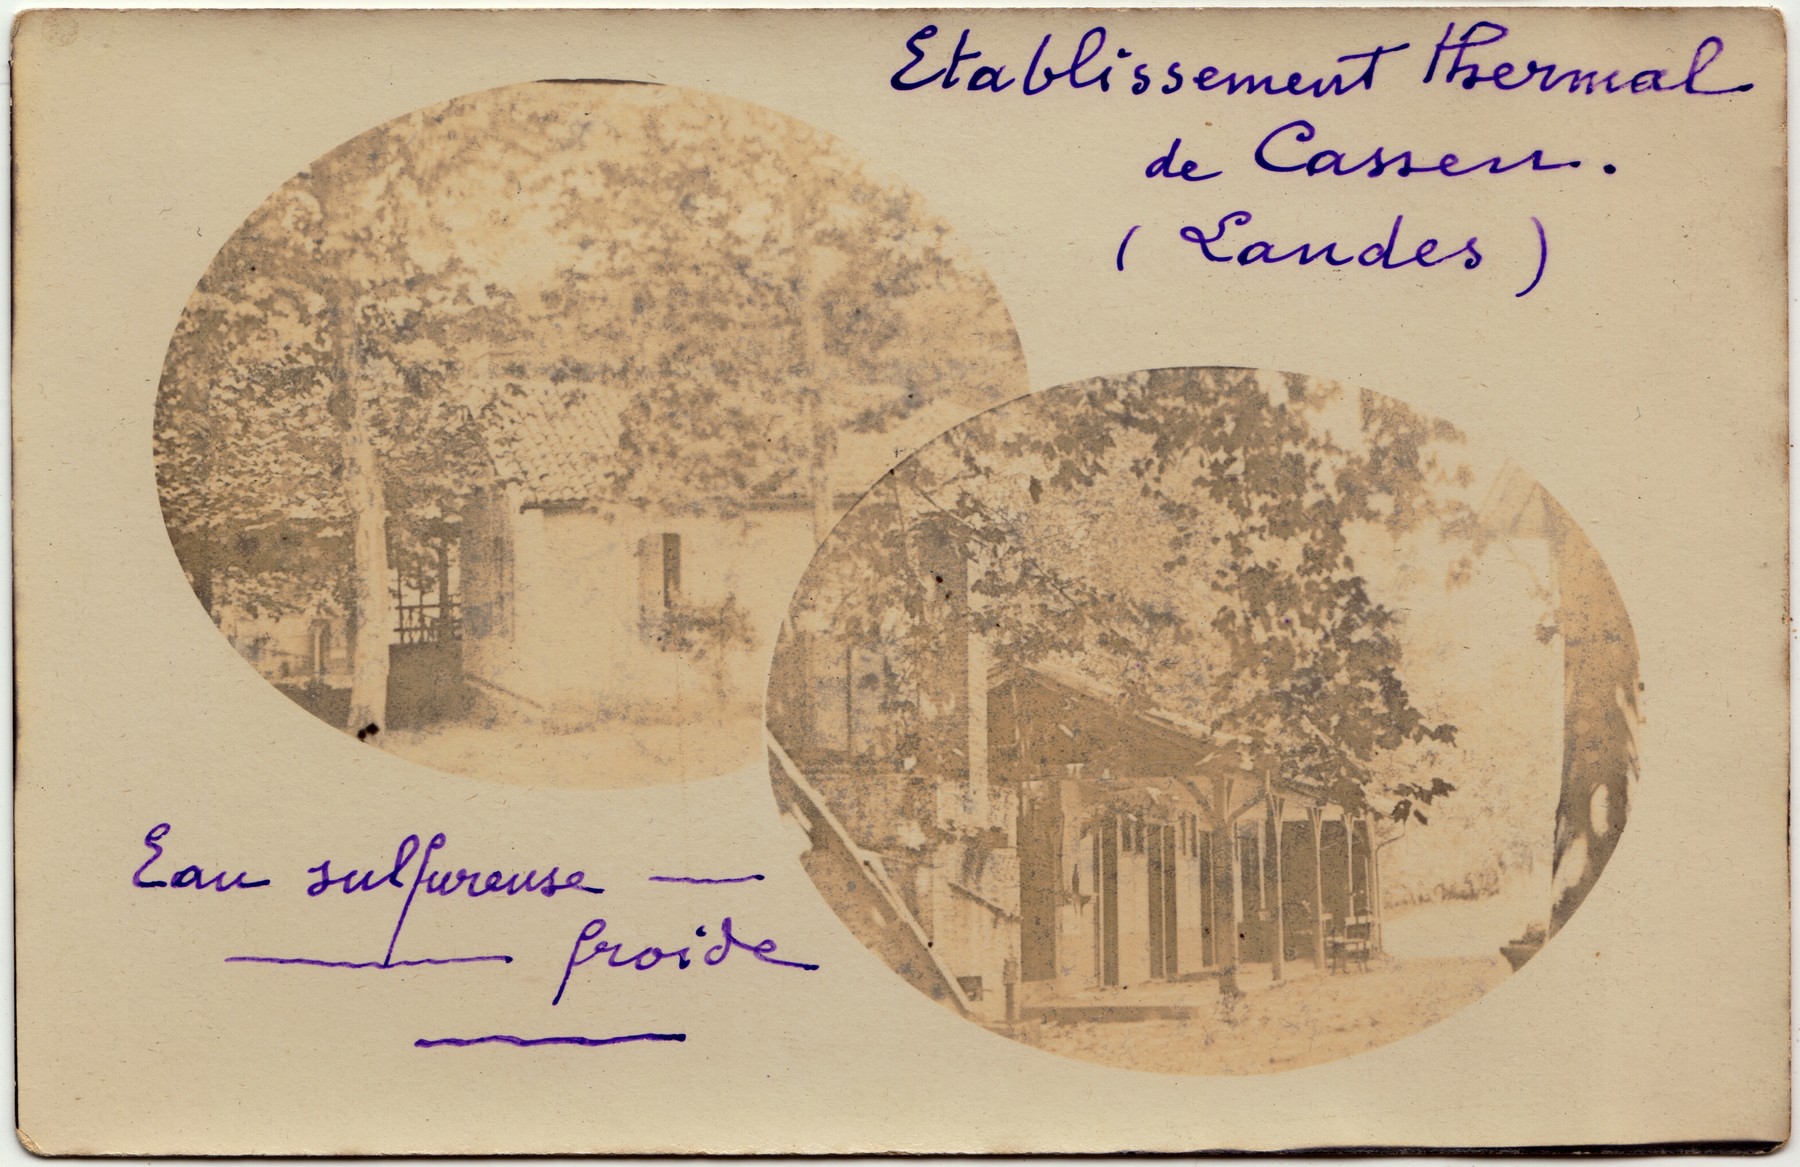 Etablissement thermal
de Cassen.
(Landes)
Eau sulfureuse —
— froide